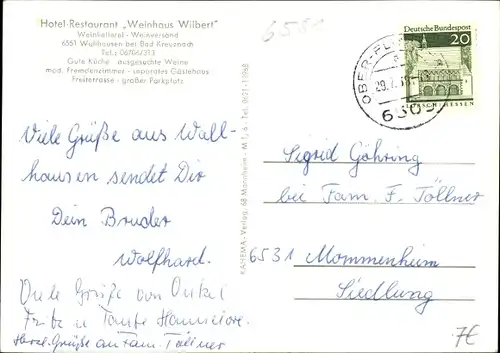 Hotel-Restaurant „Weinhaus Wilbert"
Weinkellerei - Weinversand
6551 Wallhausen bei Bad Kreuznach
Tel.: 06706/313
Gute Küche ausgesuchte Weine
mod. Fremdenzimmer - separates Gästehaus
Freiterrasse - großer Parkplatz
Viele Grüße aus Wall-
hausen sendet Dir
Dein Bruder
Wolfhard.
Viele Grüße von Onkel
Fritz u Tante Hannelore.
Herzl. Grüße an Fam. Töllner
KAHEMA-Verlag, 68 Mannheim - M 1, 6 - Tel. 0621-11958
658
Deutsche Bundespost
20
LORSCH-HESSEN
OBER-FL
29.7.68
6505
Sigrid Göhring
bei Fam. F. Töllner
6531 Mommenheim
Siedlung
7€